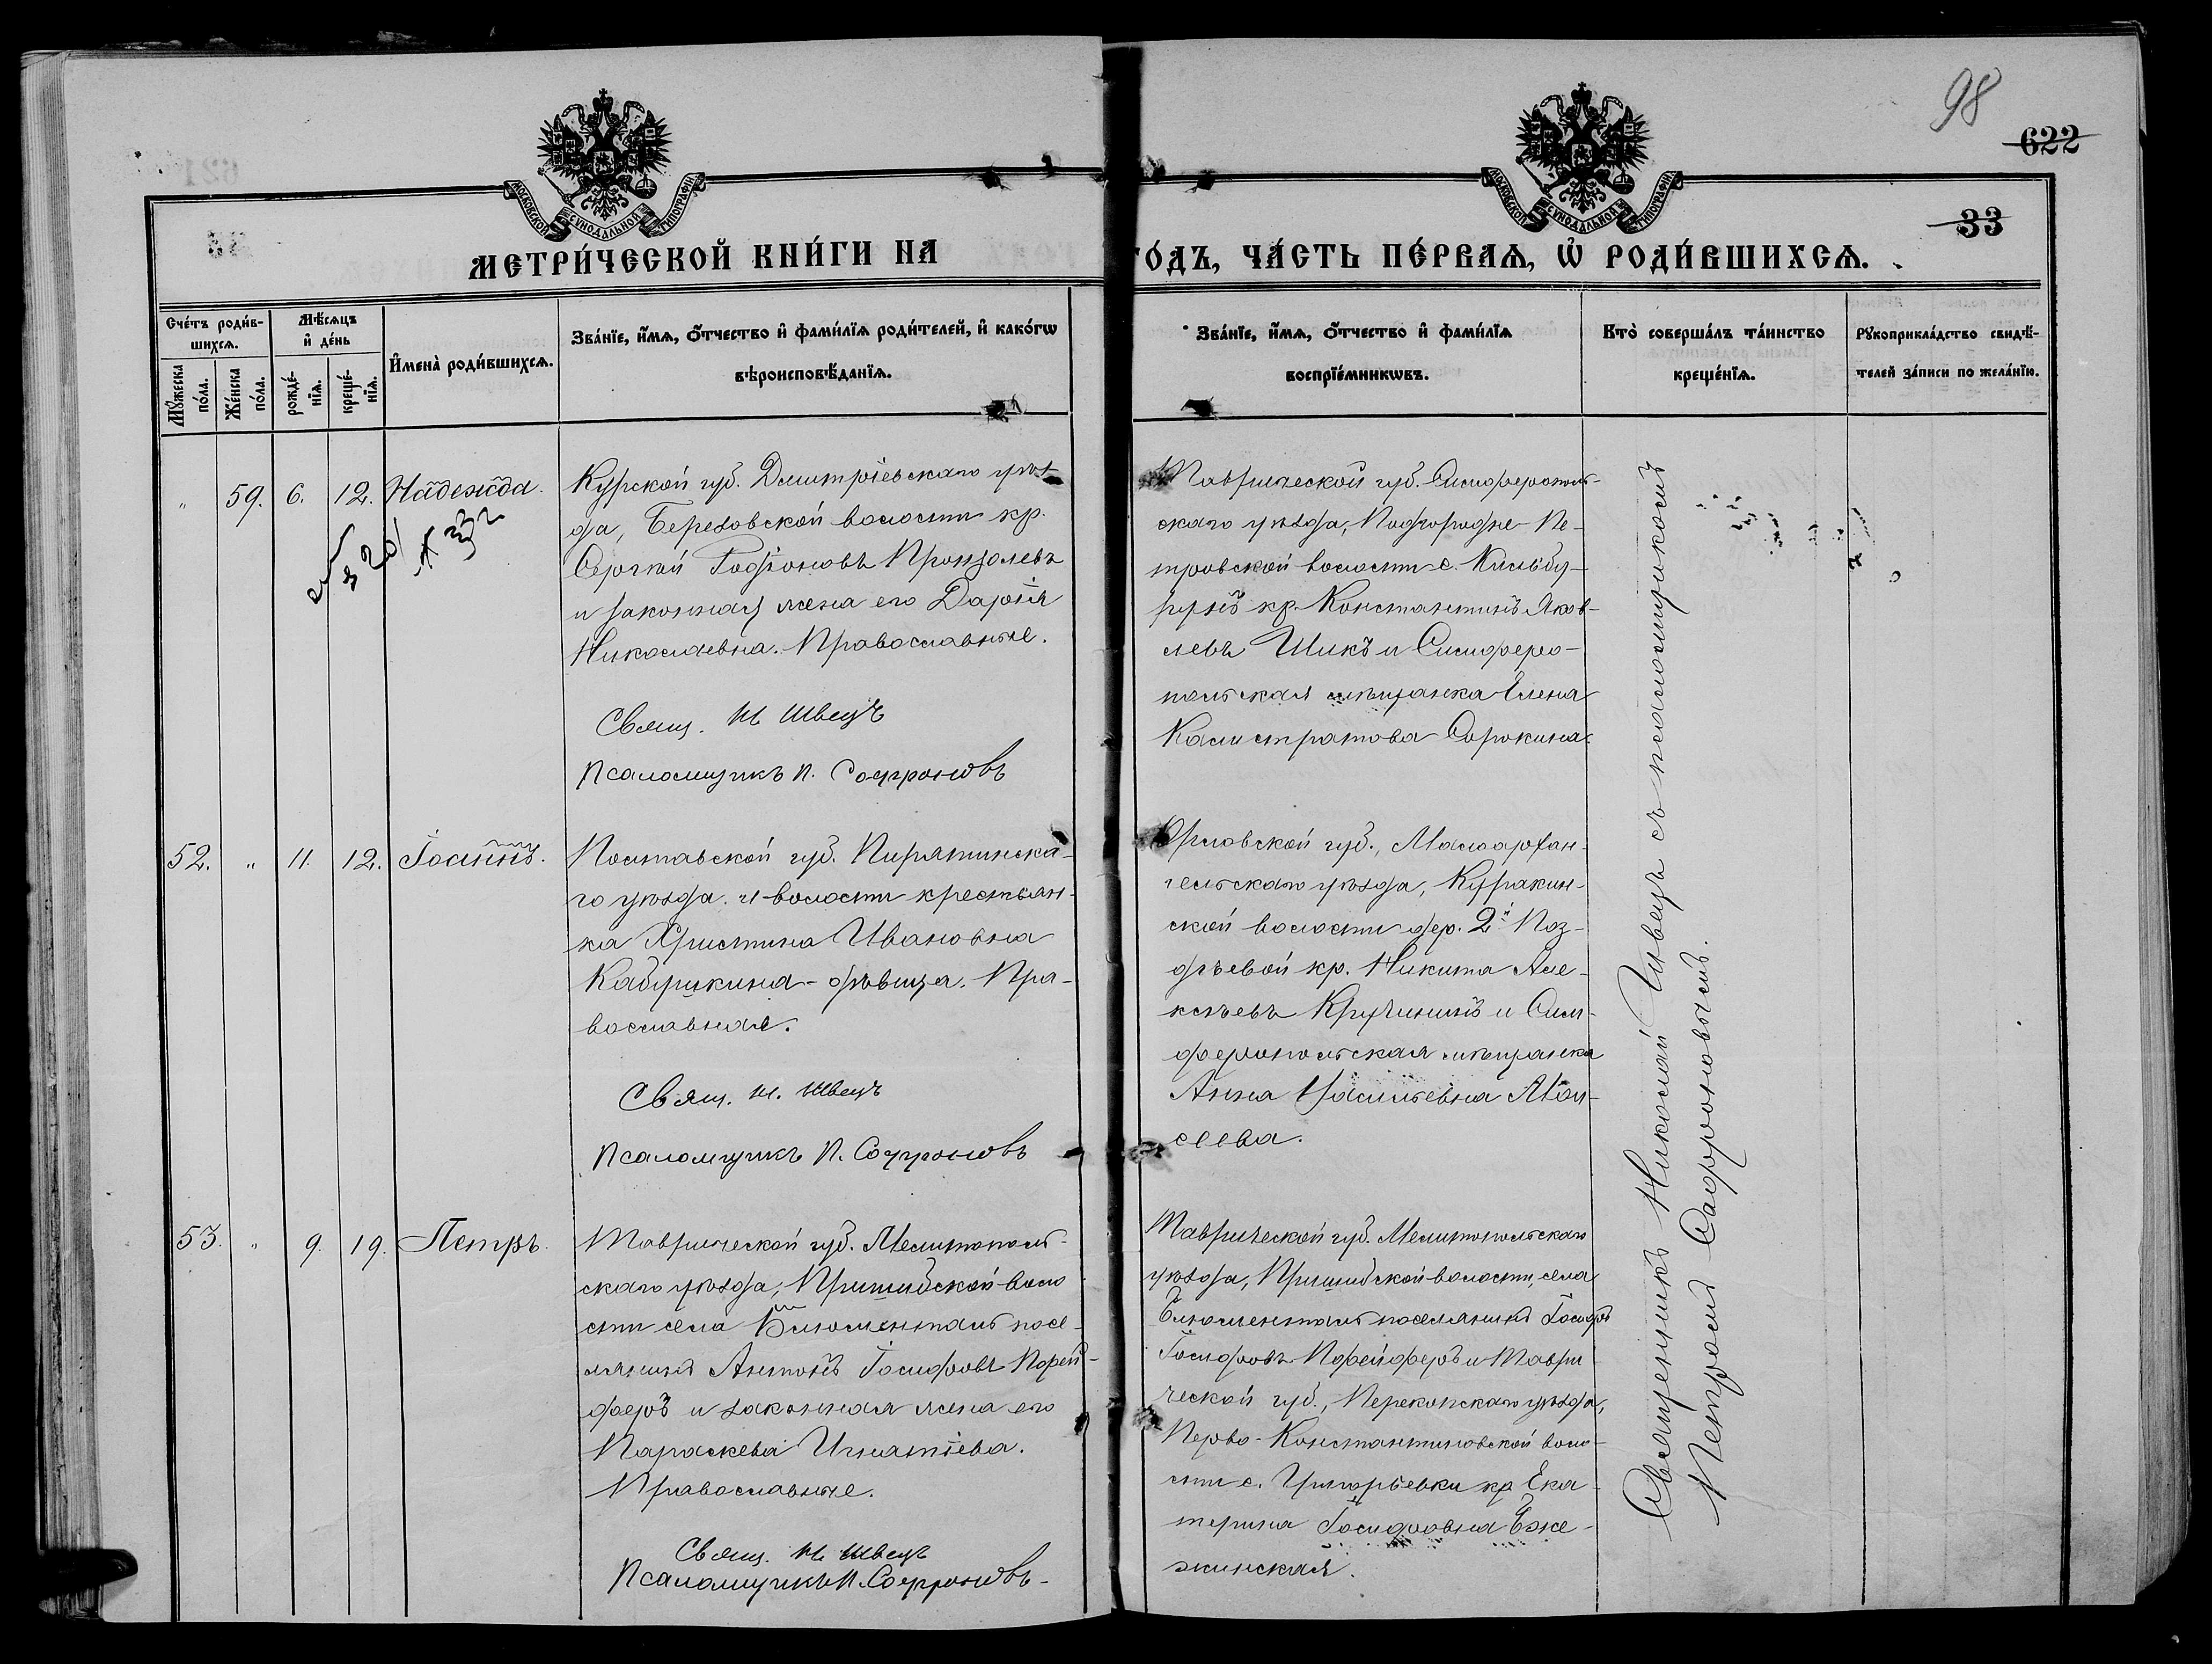 98
622
33
МОСКОВСКОЙ СѴНОДАЛЬНОЙ ТИПОГРАФІИ
МОСКОВСКОЙ СѴНОДАЛЬНОЙ ТИПОГРАФІИ
МЕТРИ́ЧЕСКОЙ КНИ́ГИ НА
ГО́ДЪ, ЧА́СТЬ ПЕ́РВАѦ, Ѡ҆ РОДИ́ВШИХСѦ.
Сче́тъ роди́в-
шихсѧ.
Мѹ́жеска по́ла.
Же́нска по́ла.
Мѣ́сѧцъ и҆ де́нь
рожде́-нїѧ.
креще́-нїѧ.
И҆мена̀ роди́вшихсѧ.
Зва́нїе, и҆́мѧ, ѻ҆́тчество и҆ фами́лїѧ роди́телей, и҆ како́гѡ
вѣроисповѣ́данїѧ.
Зва́нїе, и҆́мѧ, ѻ҆́тчество и҆ фами́лїѧ
воспрїе́мникѡвъ.
Кто̀ соверша́лъ та́инство
креще́нїѧ.
Рꙋкоприкла́дство свидѣ́-
телей за́писи по жела́нїю.
" 59. 6. 12. Надежда.
Курской губ. Дмитріевскаго уѣз-
да, Березовской волости кр.
Сергѣй Родіоновъ Пронзолевъ
и законная жена его Дарія
Николаевна. Православные.
Свящ. Н Швецъ
Псаломщикъ П. Софроновъ
Таврической губ. Симферополь-
скаго уѣзда, Подгородне-Пе-
тровской волости с. Кильбу-
рунъ кр. Константинъ Яков-
левъ Шикъ и Симферо-
польская мѣщанка Елена
Калистратова Сорокина.
52. " 11. 12. Іоаннъ.
Полтавской губ. Пирятинска-
го уѣзда и волости крестьян-
ка Христина Ивановна
Кабушкина - дѣвица. Пра-
вославная.
Свящ. Н. Швецъ
Псаломщикъ П. Софроновъ
Орловской губ., Малоархан-
гельскаго уѣзда, Куракин-
ской волости дер. 2й Поз-
дѣевой кр. Никита Але-
ксѣевъ Кручининъ и Сим-
феропольская мѣщанка
Анна Васильевна Мои-
сеева.
53. " 9. 19. Петръ.
Таврической губ. Мелитополь-
скаго уѣзда, Пришибской воло
сти села Блюменталь посе-
лянинъ Антонъ Іосифовъ Порей-
феръ и законная жена его
Параскева Игнатіева.
Православные.
Свящ. Н. Швецъ
Псаломщикъ П. Софроновъ
Таврической губ. Мелитопольскаго
уѣзда, Пришибской волости, села
Блюменталь поселянинъ Іосифъ
Іосифовъ Порейферъ и Таври
ческой губ., Перекопскаго уѣзда,
Перво-Константиновской воло-
сти с. Григорьевки кр Ека-
терина Іосифовна Еже-
жинская.
Священникъ Николай Швецъ съ псаломщикомъ
Петромъ Софроновымъ.